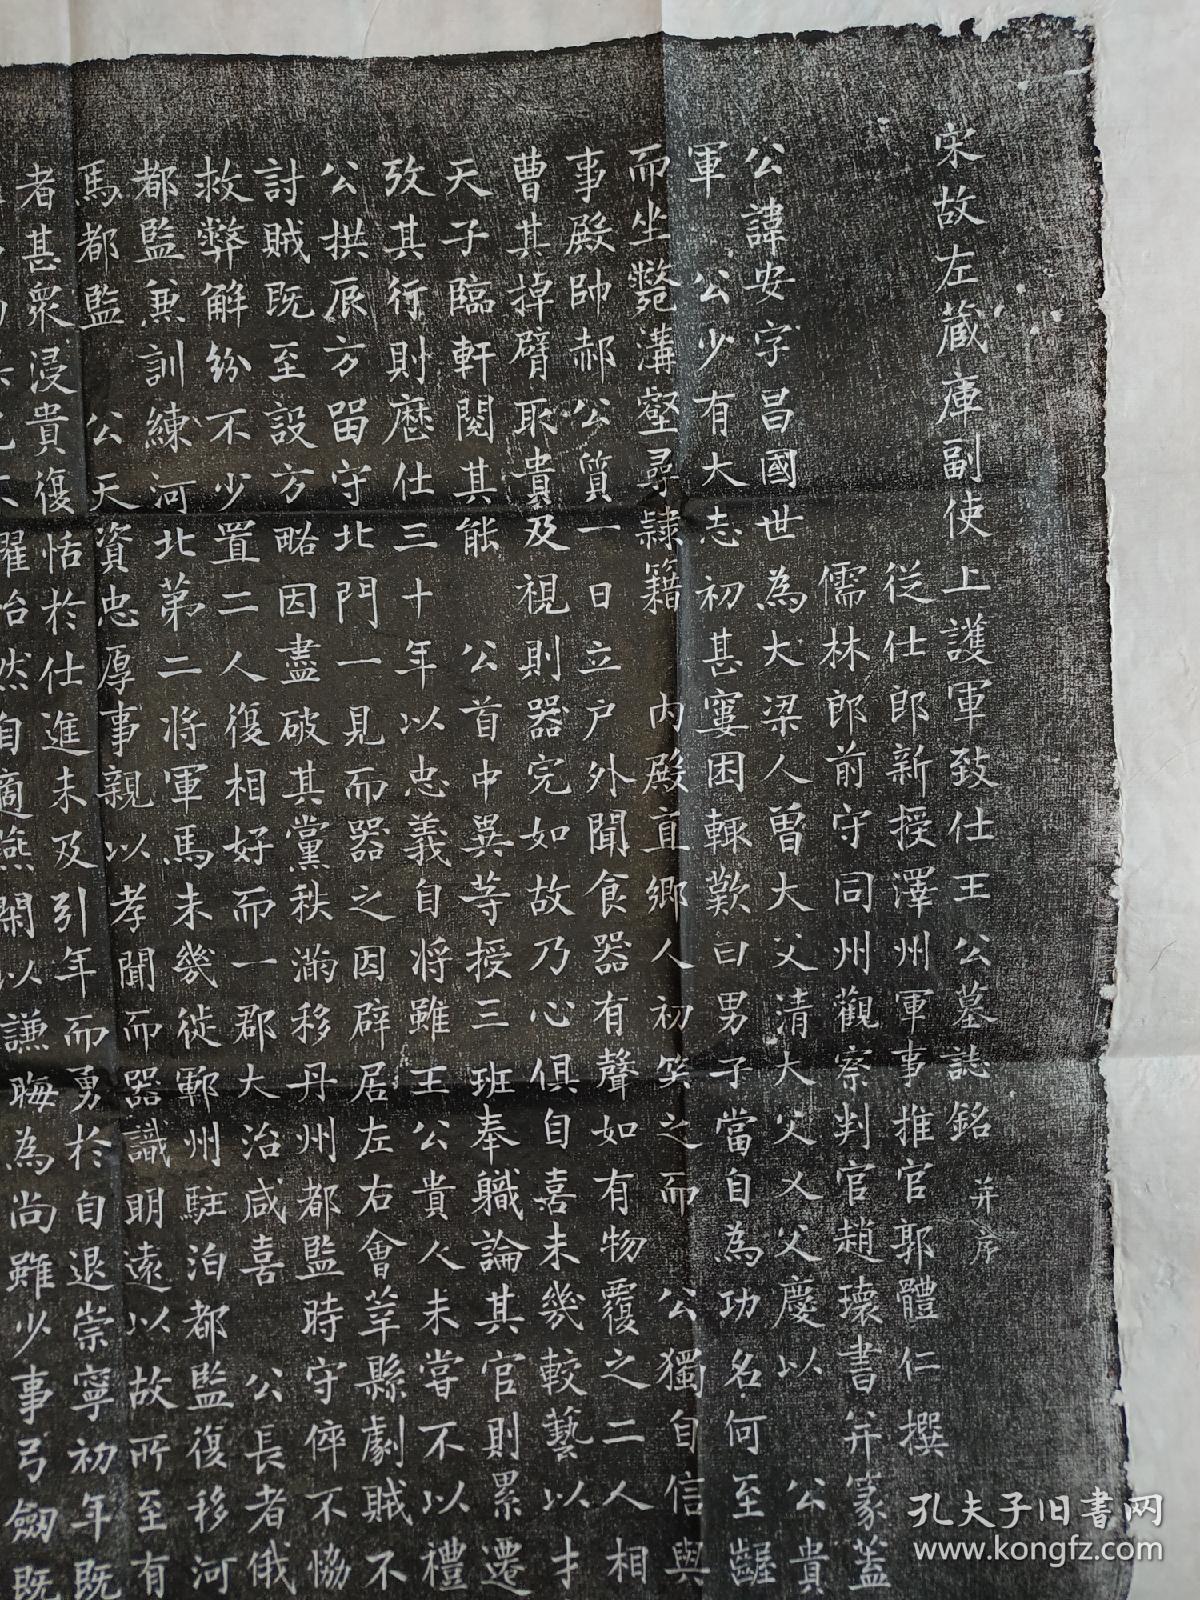 宋故左藏庫副使上護軍致仕王公墓誌銘 并序
從仕郎新授澤州軍事推官郭體仁撰
儒林郎前守同州觀察判官趙瓌書并篆蓋
公諱安字昌國世為大梁人曾大父清大父乂父慶以 公貴
軍 公少有大志初甚窶困輒歎曰男子當自為功名何至齷
而坐斃溝壑尋隷籍 內殿直鄉人初笑之而 公獨自信與
事殿帥郝公質一日立戶外聞食器有聲如有物覆之二人相
曹其掉臂取貴及視則器完如故乃心俱自喜未幾較藝以才
天子臨軒閱其能 公首中異等授三班奉職論其官則累遷
攷其行則歷仕三十年以忠義自將雖王公貴人未嘗不以禮
公拱辰方留守北門一見而器之因辟居左右會莘縣劇賊不
討賊既至設方略因盡破其黨秩滿移丹州都監時守倅不恊
救弊解紛不少置二人復相好而一郡大治咸喜 公長者俄
都監兼訓練河北第二將軍馬未幾徙鄆州駐泊都監復移河
馬都監 公天資忠厚事親以孝聞而器識明遠以故所至有
者甚衆浸貴復恬於仕進未及引年而勇於自退崇寧初年既
怡然自適燕閑以謙晦為尚雖少事弓劒既
孔夫子旧书网
www.kongfz.com